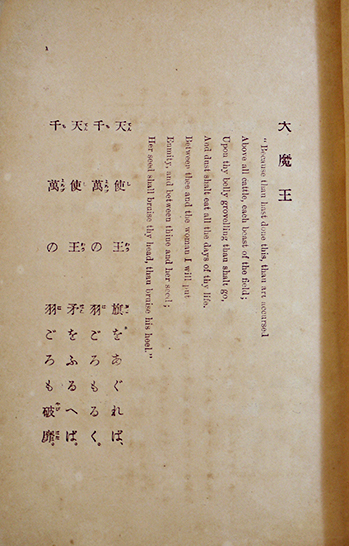 大魔王
"Because thou hast done this, thou art accursed
Above all cattle, each beast of the field;
Upon thy belly grovelling thou shalt go,
And dust shalt eat all the days of thy life.
Between thee and the woman I will put
Enmity, and between thine and her seed;
Her seed shall bruise thy head, thou bruise his heel."
天使王 旗をあぐれば、
千萬の 羽ごろもるく。
天使王 矛をふるへば。
千萬の 羽ごろも破靡。